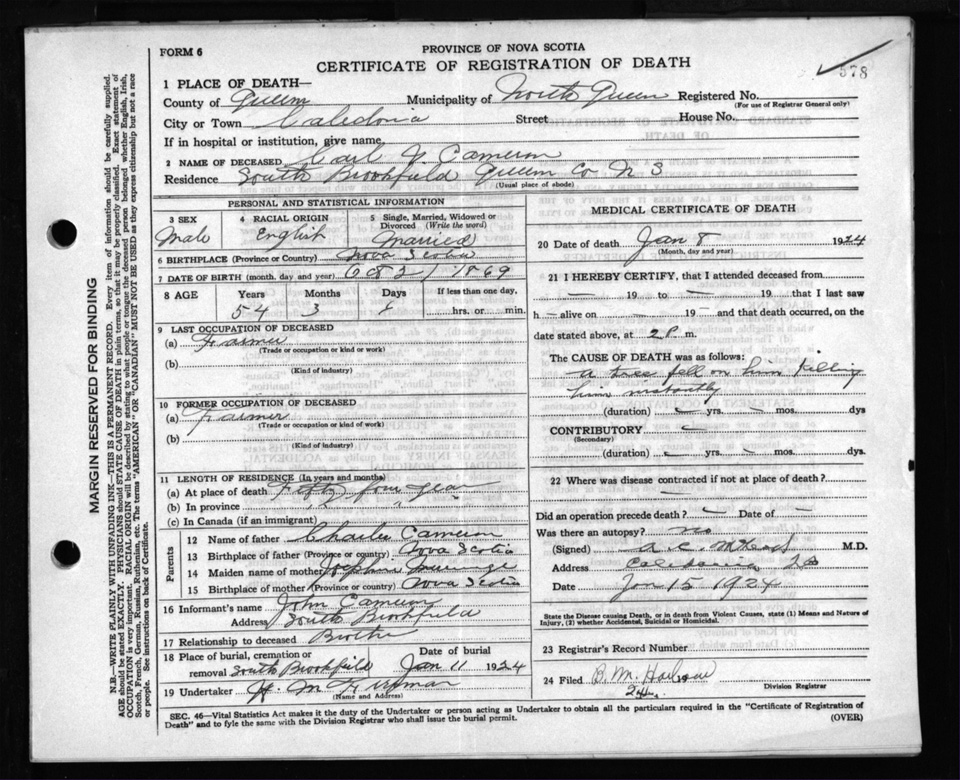 FORM 6
PROVINCE OF NOVA SCOTIA
CERTIFICATE OF REGISTRATION OF DEATH
578
MARGIN RESERVED FOR BINDING
N.B.—WRITE PLAINLY WITH UNFADING INK—THIS IS A PERMANENT RECORD. Every item of information should be carefully supplied.
AGE should be stated EXACTLY. PHYSICIANS should STATE CAUSE OF DEATH in plain terms, so that it may be properly classified. Exact statement of
OCCUPATION is very important. RACIAL ORIGIN will be described by stating to what people or tongue the deceased person belonged whether English, Irish,
Scotch, French, German, Russian, Ruthenian, etc. The terms "AMERICAN" OR "CANADIAN" MUST NOT BE USED as they express citizenship but not a race
or people. See instructions on back of Certificate.
1 PLACE OF DEATH—
County of Queens Municipality of North Queens Registered No.
(For use of Registrar General only)
City or Town Caledonia Street House No.
If in hospital or institution, give name
2 NAME OF DECEASED Carl J. Cameron
Residence South Brookfield Queens Co N S
(Usual place of abode)
PERSONAL AND STATISTICAL INFORMATION
3 SEX Male
4 RACIAL ORIGIN English
5 Single, Married, Widowed or Divorced (Write the word) Married
6 BIRTHPLACE (Province or Country) Nova Scotia
7 DATE OF BIRTH (month, day and year) Oct 2 1869
8 AGE Years Months Days If less than one day,
54 3 6 hrs. or min.
9 LAST OCCUPATION OF DECEASED
(a) Farmer
(Trade or occupation or kind or work)
(b)
(Kind of industry)
10 FORMER OCCUPATION OF DECEASED
(a) Farmer
(Trade or occupation or kind or work)
(b)
(Kind of industry)
11 LENGTH OF RESIDENCE (In years and months)
(a) At place of death Fifty four years
(b) In province " "
(c) In Canada (if an immigrant)
Parents
12 Name of father Charles Cameron
13 Birthplace of father (Province or country) Nova Scotia
14 Maiden name of mother Josephine
15 Birthplace of mother (Province or country) Nova Scotia
16 Informant's name John Cameron
Address South Brookfield
17 Relationship to deceased Brother
18 Place of burial, cremation or Date of burial
removal South Brookfield Jan 11 1924
19 Undertaker
(Name and Address)
MEDICAL CERTIFICATE OF DEATH
20 Date of death Jan 8 1924
(Month, day and year)
21 I HEREBY CERTIFY, that I attended deceased from
— 19 — to — 19 — that I last saw
h — alive on — 19 — and that death occurred, on the
date stated above, at 2 P. m.
The CAUSE OF DEATH was as follows:
A tree fell on him killing
him instantly
(duration) — yrs. — mos. dys
CONTRIBUTORY —
(Secondary)
(duration) — yrs. — mos. dys
22 Where was disease contracted if not at place of death?
—
Did an operation precede death? — Date of —
Was there an autopsy? no
(Signed) A. C. M.D.
Address Caledonia
Date Jan 15 1924
State the Disease causing Death, or in death from Violent Causes, state (1) Means and Nature of
Injury, (2) whether Accidental, Suicidal or Homicidal.
23 Registrar's Record Number
24 Filed B. M.
Division Registrar
SEC. 46—Vital Statistics Act makes it the duty of the Undertaker or person acting as Undertaker to obtain all the particulars required in the "Certificate of Registration of
Death" and to fyle the same with the Division Registrar who shall issue the burial permit.
(OVER)